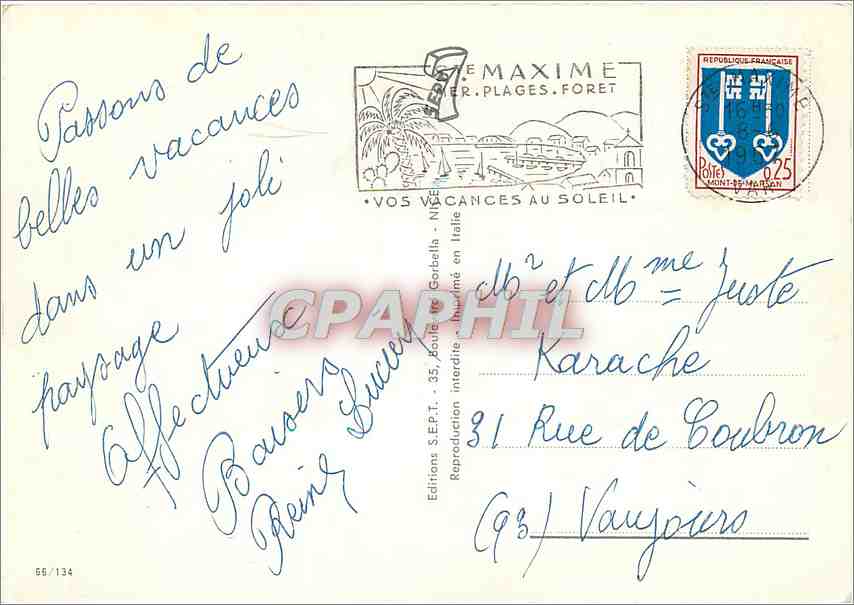 Passons de
belles vacances
dans un joli
paysage
Affectueux
Baisers
Reine Lucien
STE MAXIME
MER.PLAGES.FORET
•VOS VACANCES AU SOLEIL•
REPUBLIQUE FRANÇAISE
POSTES 0,25
MONT-DE-MARSAN
STE MAXIME
16H30
VAR
Editions S.E.P.T. - 35, Boulevard Gorbella - NICE
Reproduction interdite - Imprimé en Italie
SEPT
CPAPHIL
Mr et Mme Juste
Karache
31 Rue de Coubron
(93) Vaujours
66/134